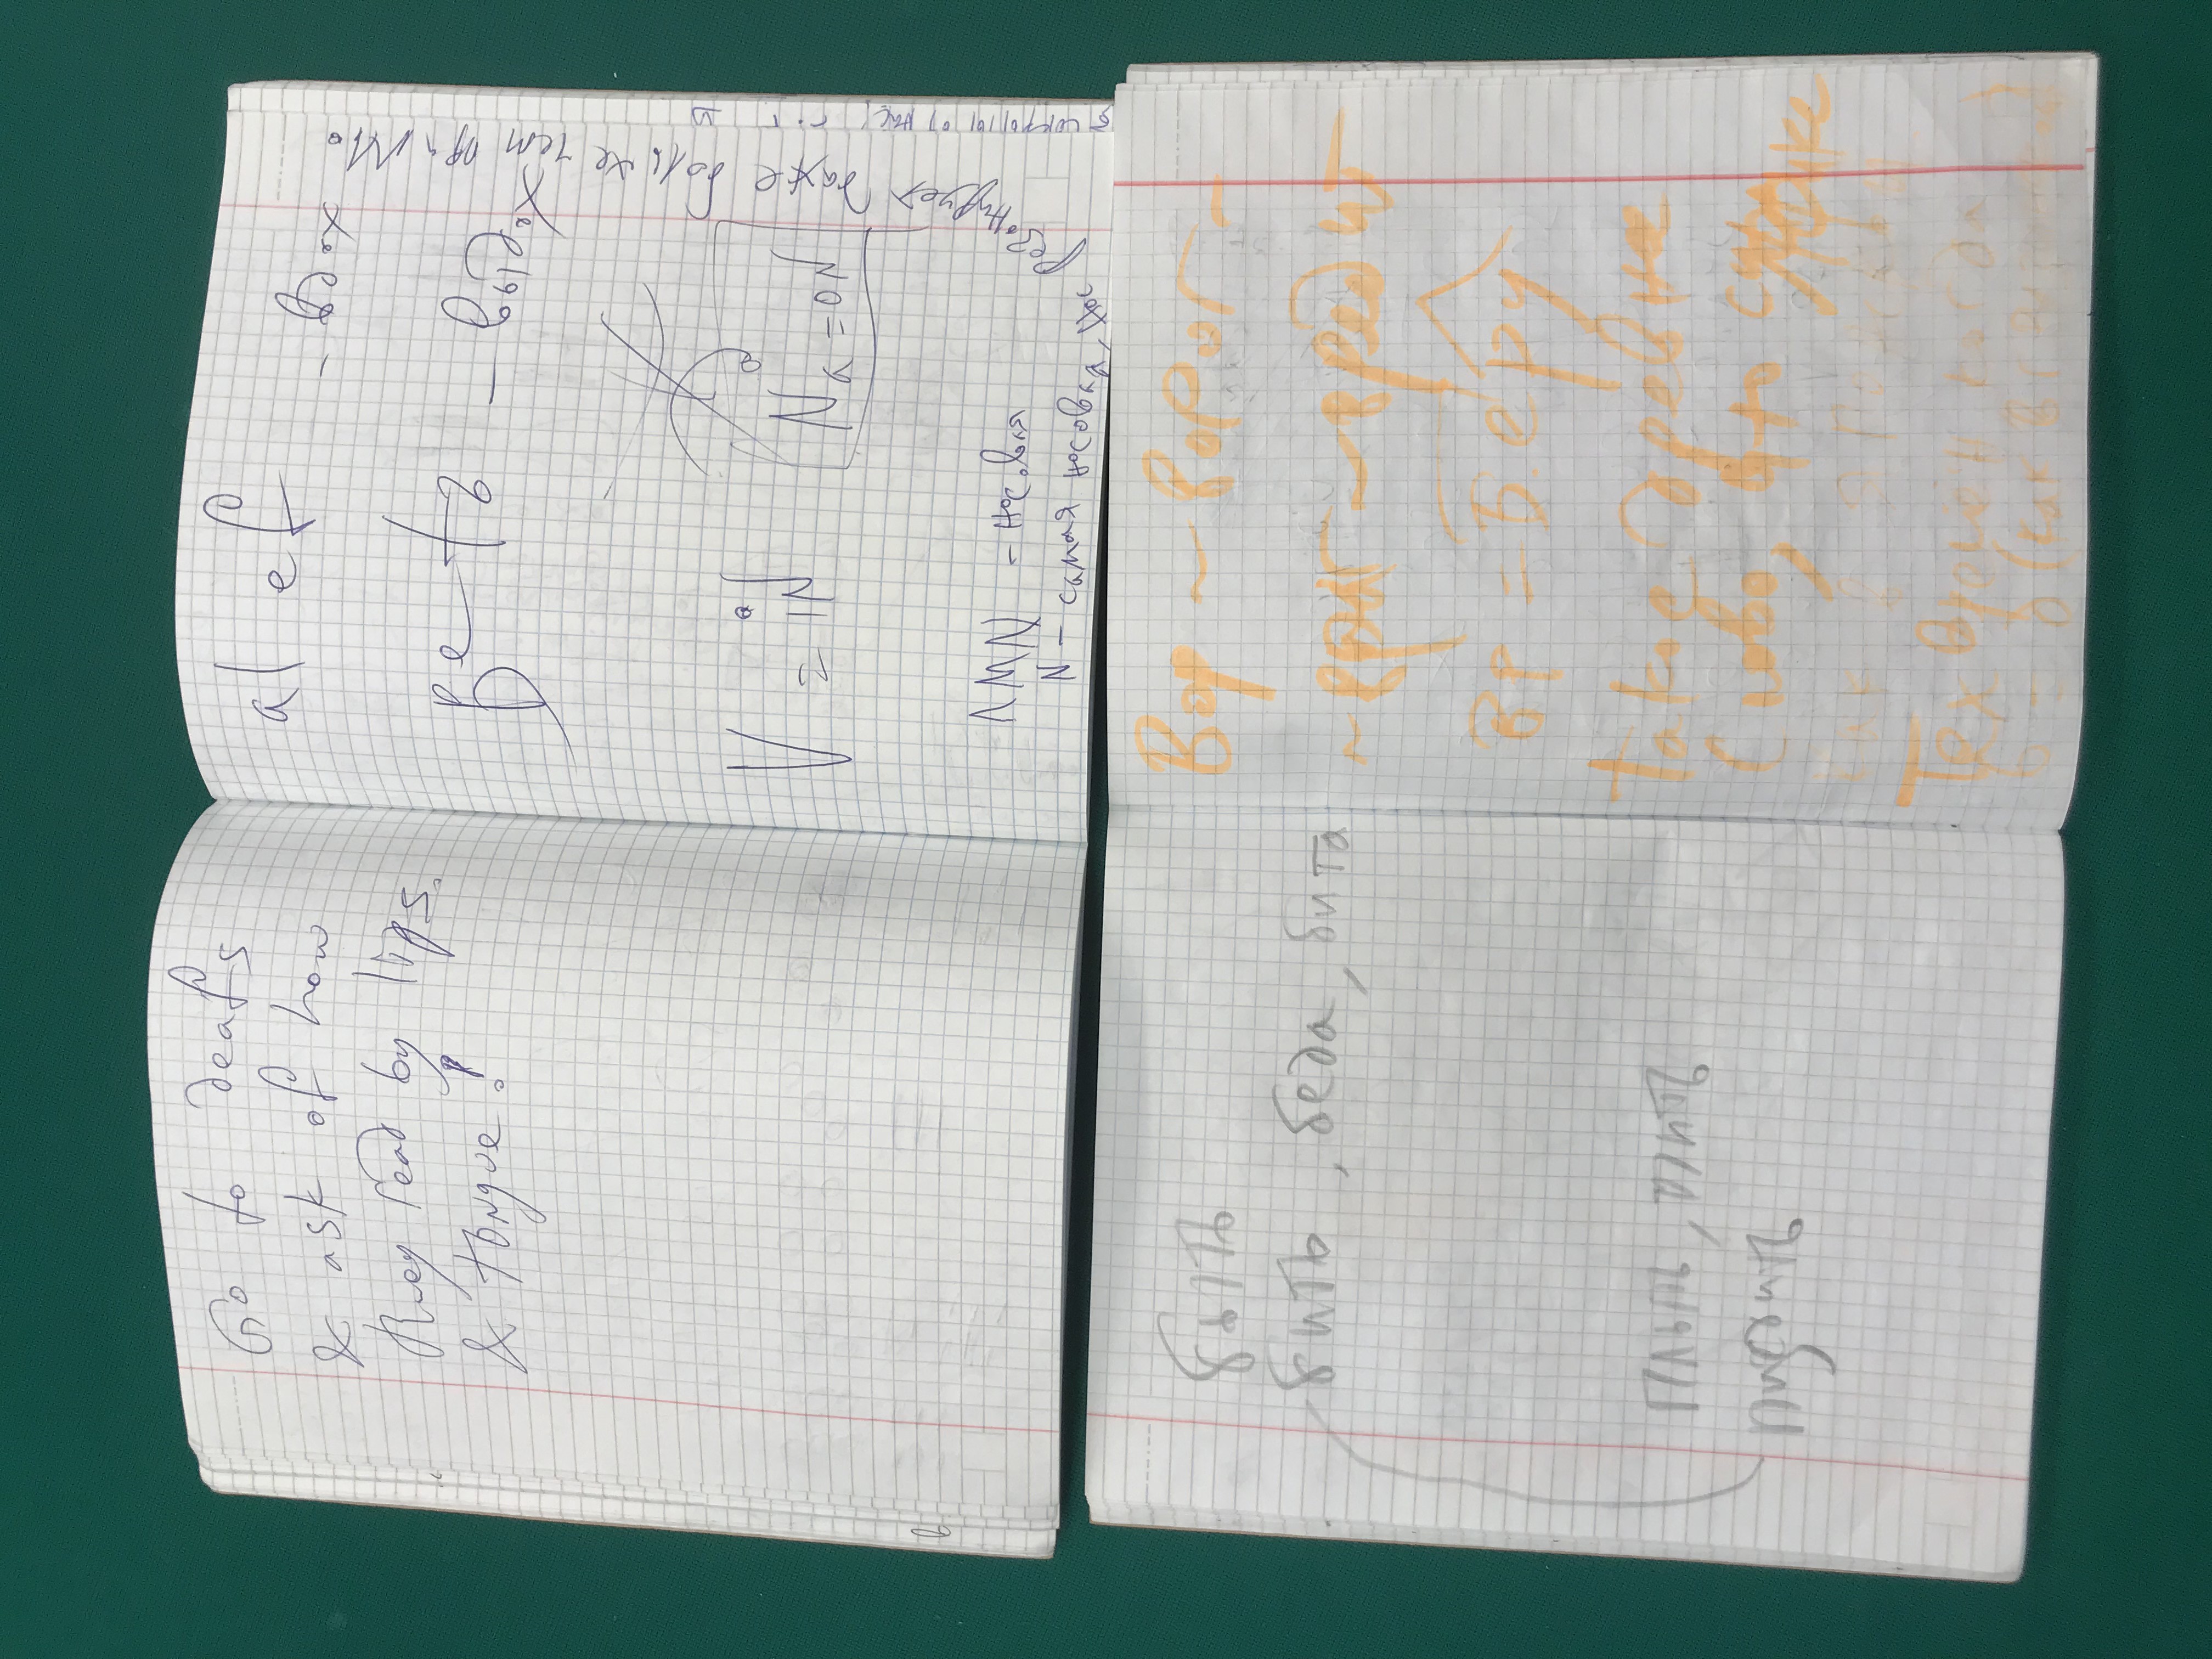 Go to deafs
& ask of how
they read by lips.
& tongue!
al ef - вдох
беть - выдох
V = iN
Na = oN
NMN - носовая
N - самая носовка, нос
резонирует даже больше чем при M
быть
бить, беда, бита
пилить,
Вор ~ ворог -
~ враг ~ вредит
Вр = Беру
такое древнее
слово, что
как в
Тех времён когда
б = в (как в